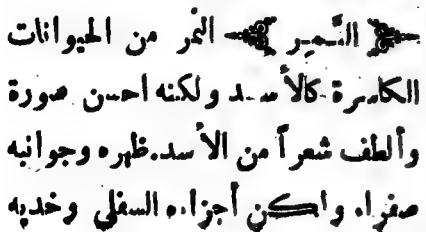 النَّمِر النمر من الحيوانات
الكاسرة كالأسد ولكنه احسن صورة
وألطف شعراً من الأسد. ظهره وجوانبه
صفراء ولكن أجزاءه السفلي وخديه